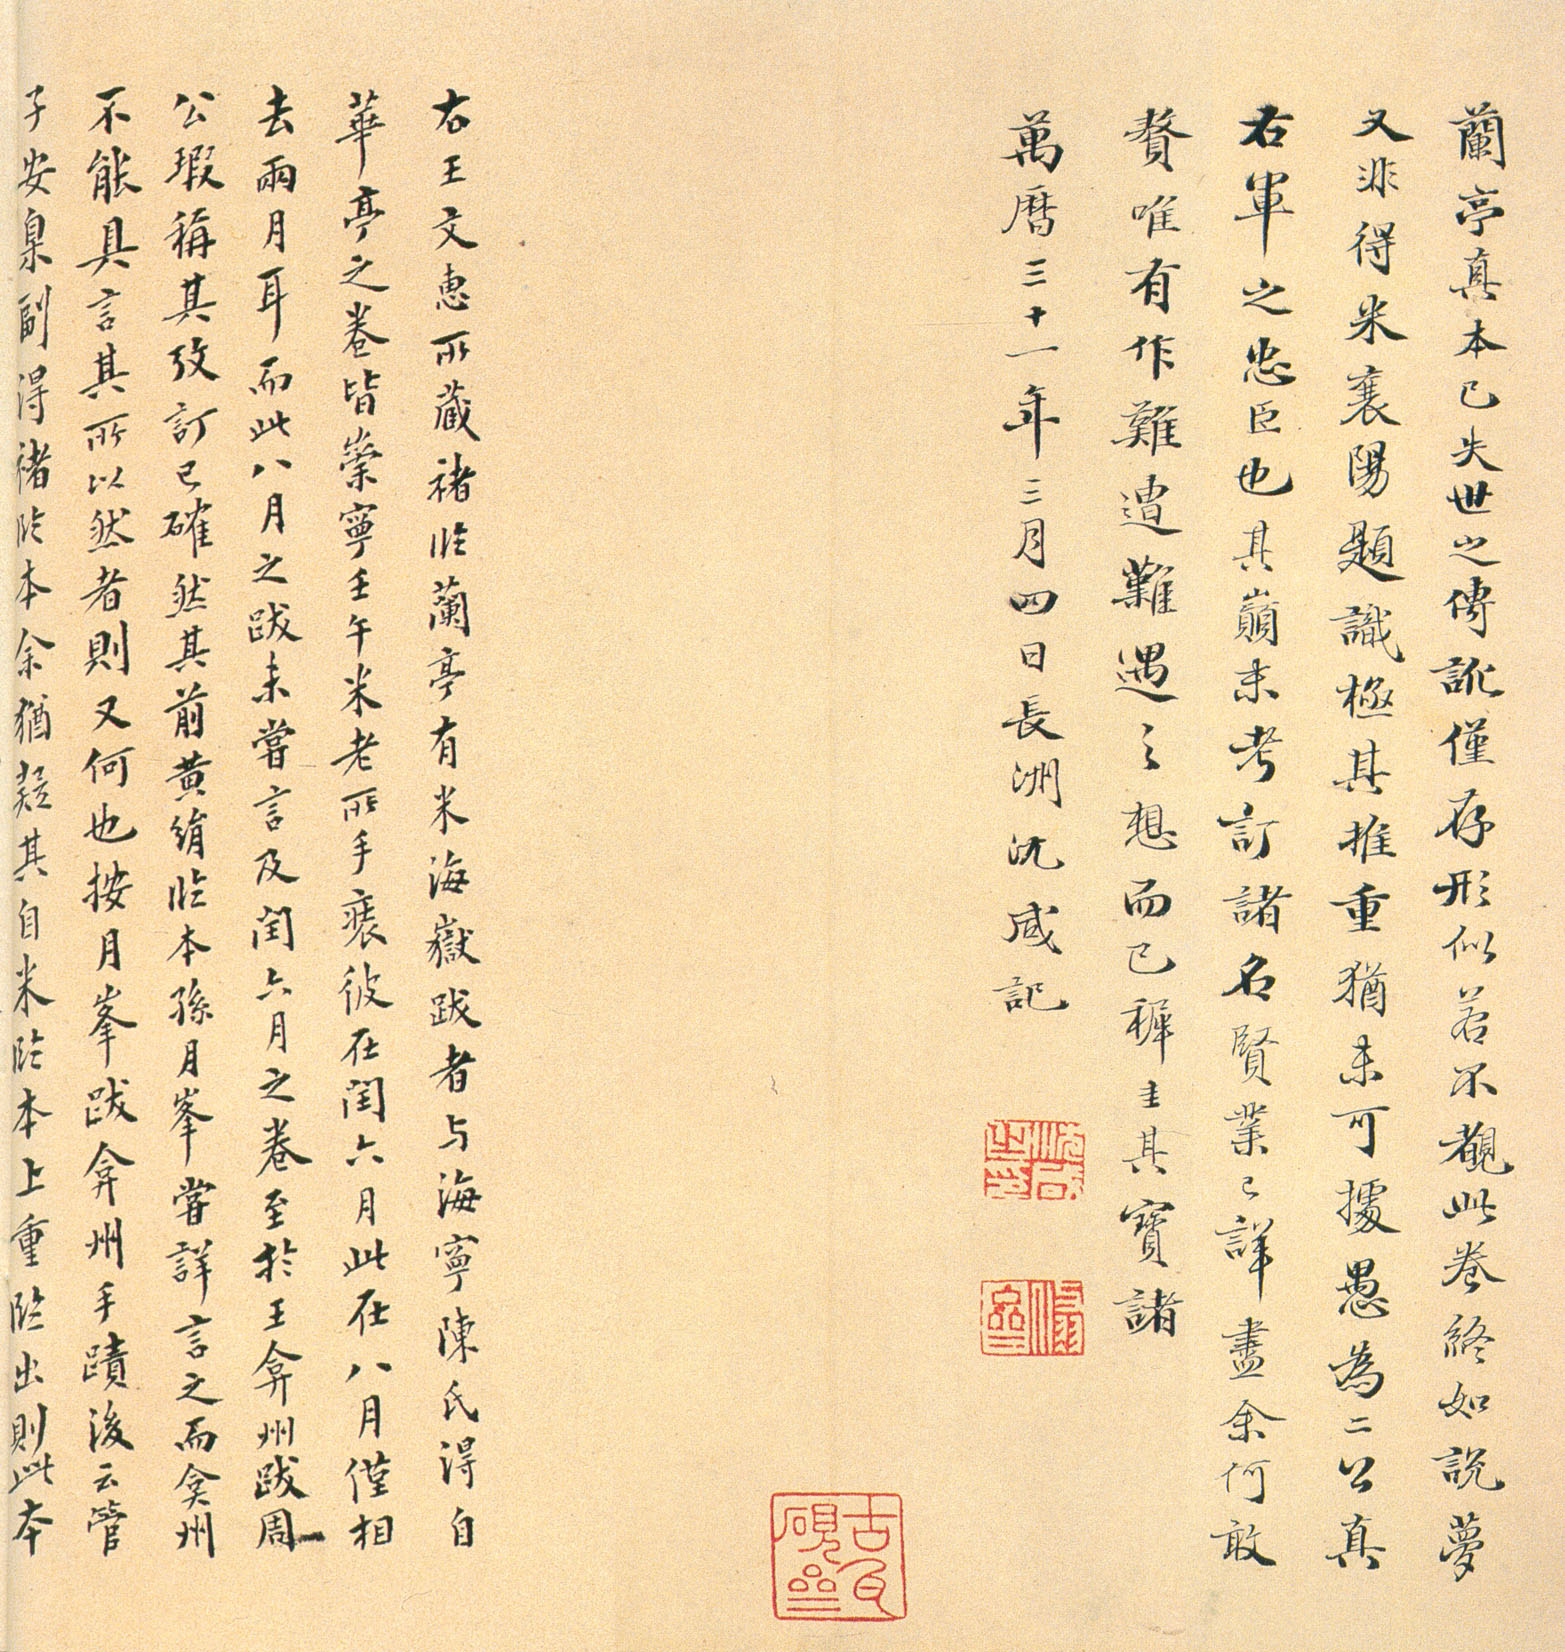 蘭亭真本已失世之傳訛僅存形似若不覩此卷終如說夢
又非得米襄陽題識極其推重猶未可據愚為二公真
右軍之忠臣也其巔末考訂諸名賢業已詳盡余何敢
贅唯有作難遭難遇之想而已穉圭其寶諸
萬曆三十一年三月四日長洲沈咸記
右王文惠所藏褚臨蘭亭有米海嶽跋者与海寧陳氏得自
華亭之卷皆崇寧壬午米老所手裝彼在閏六月此在八月僅相
去兩月耳而此八月之跋未嘗言及閏六月之卷至於王弇州跋周
公瑕稱其攷訂已確然其前黃絹臨本孫月峯嘗詳言之而弇州
不能具言其所以然者則又何也按月峯跋弇州手蹟後云管
子安臬副得褚臨本余猶疑其自米臨本上重臨出則此本
古瓦
硯